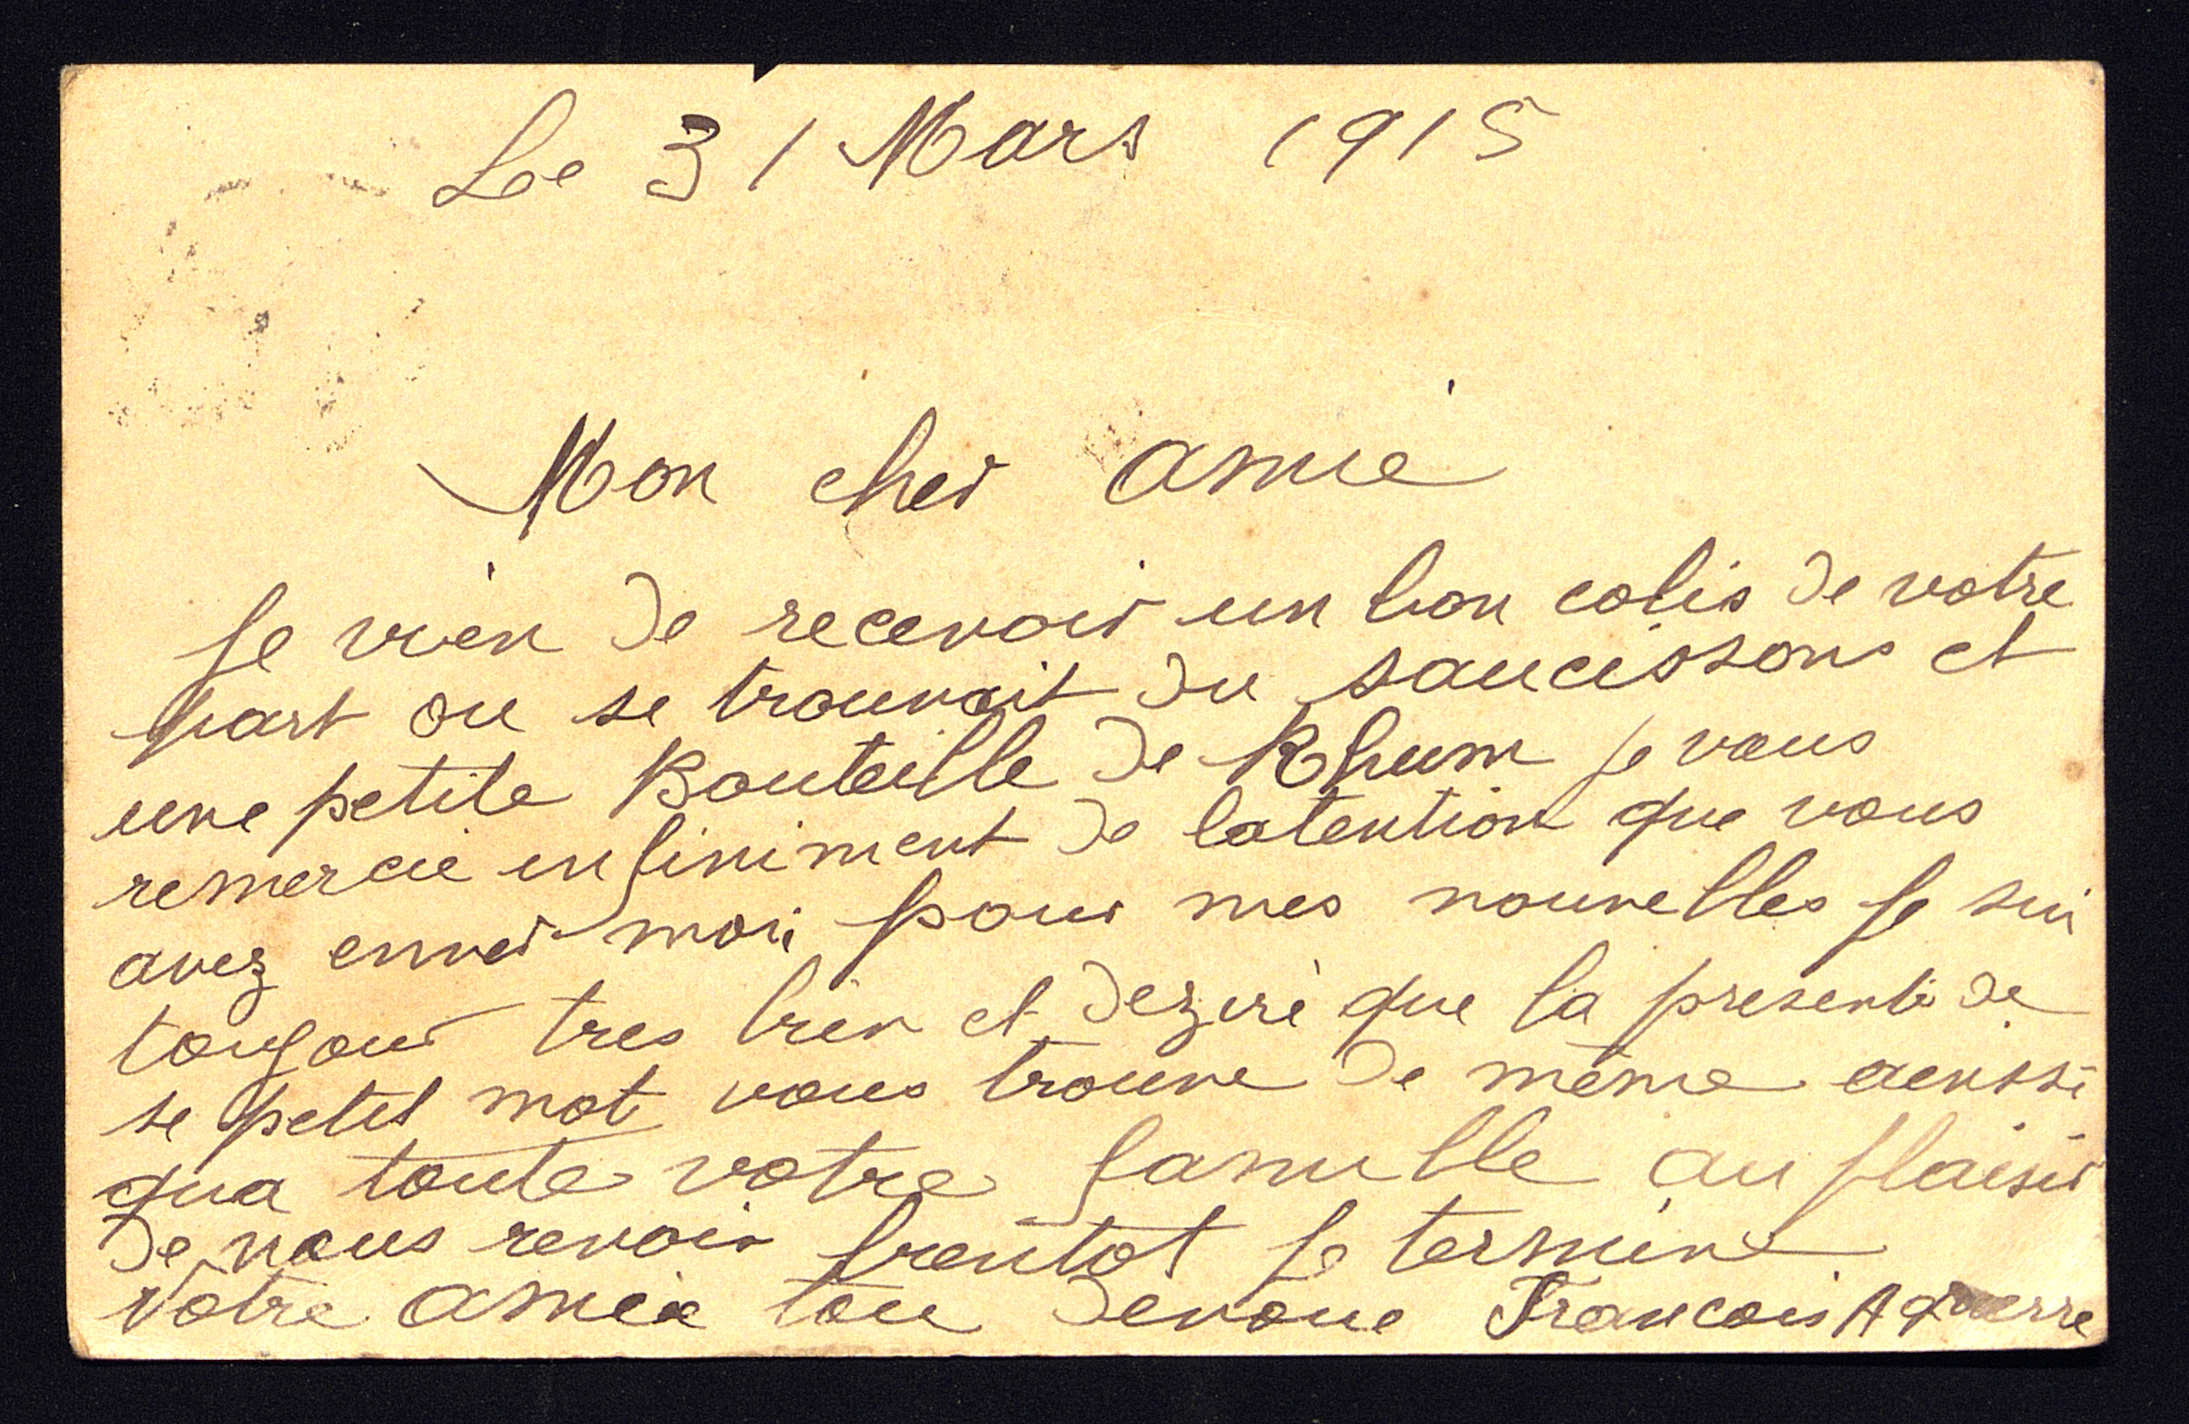 Le 31 Mars 1915
Mon cher amie
Je vien de recevoir un bon colis de votre
part ou se trouvait du saucissons et
une petite Bouteille de Rhum je vous
remercie infiniment de latention que vous
avez enver moi pour mes nouvelles Je sui
toujour tres bien et dezire que la presente de
se petit mot vous trouve de même aussi
qua toute votre famille au plaisir
de nous revoir bientot Je termine
Votre amie tou devoue Francois Aguerre